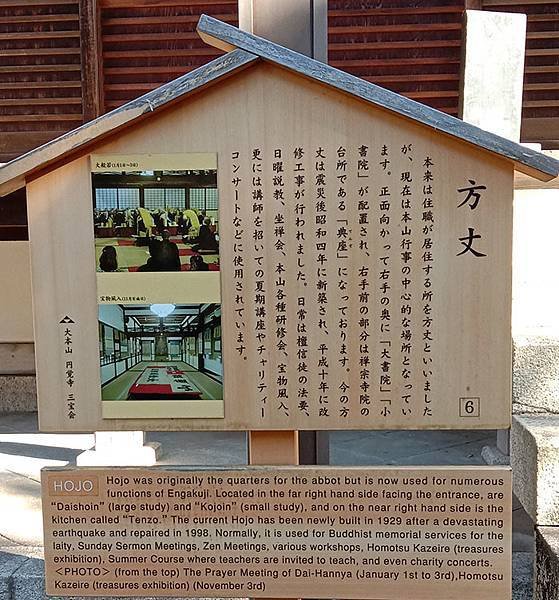 方丈
本来は住職が居住する所を方丈といいました
が、現在は本山行事の中心的な場所となってい
ます。正面向かって右手の奥に「大書院」「小
書院」が配置され、右手前の部分は禅宗寺院の
台所である「典座」になっております。今の方
丈は震災後昭和四年に新築され、平成十年に改
修工事が行われました。日常は檀信徒の法要、
日曜説教、坐禅会、本山各種研修会、宝物風入、
更には講師を招いての夏期講座やチャリティー
コンサートなどに使用されています。
6
大般若(1月1日〜3日)
宝物風入(11月初旬頃)
大本山 円覚寺 三宝会
HOJO Hojo was originally the quarters for the abbot but is now used for numerous
functions of Engakuji. Located in the far right hand side facing the entrance, are
"Daishoin" (large study) and "Kojoin" (small study), and on the near right hand side is the
kitchen called "Tenzo." The current Hojo has been newly built in 1929 after a devastating
earthquake and repaired in 1998, Normally, it is used for Buddhist memorial services for the
laity, Sunday Sermon Meetings, Zen Meetings, various workshops, Homotsu Kazeire (treasures
exhibition), Summer Course where teachers are invited to teach, and even charity concerts.
<PHOTO> (from the top) The Prayer Meeting of Dai-Hannya (January 1st to 3rd),Homotsu
Kazeire (treasures exhibition) (November 3rd)